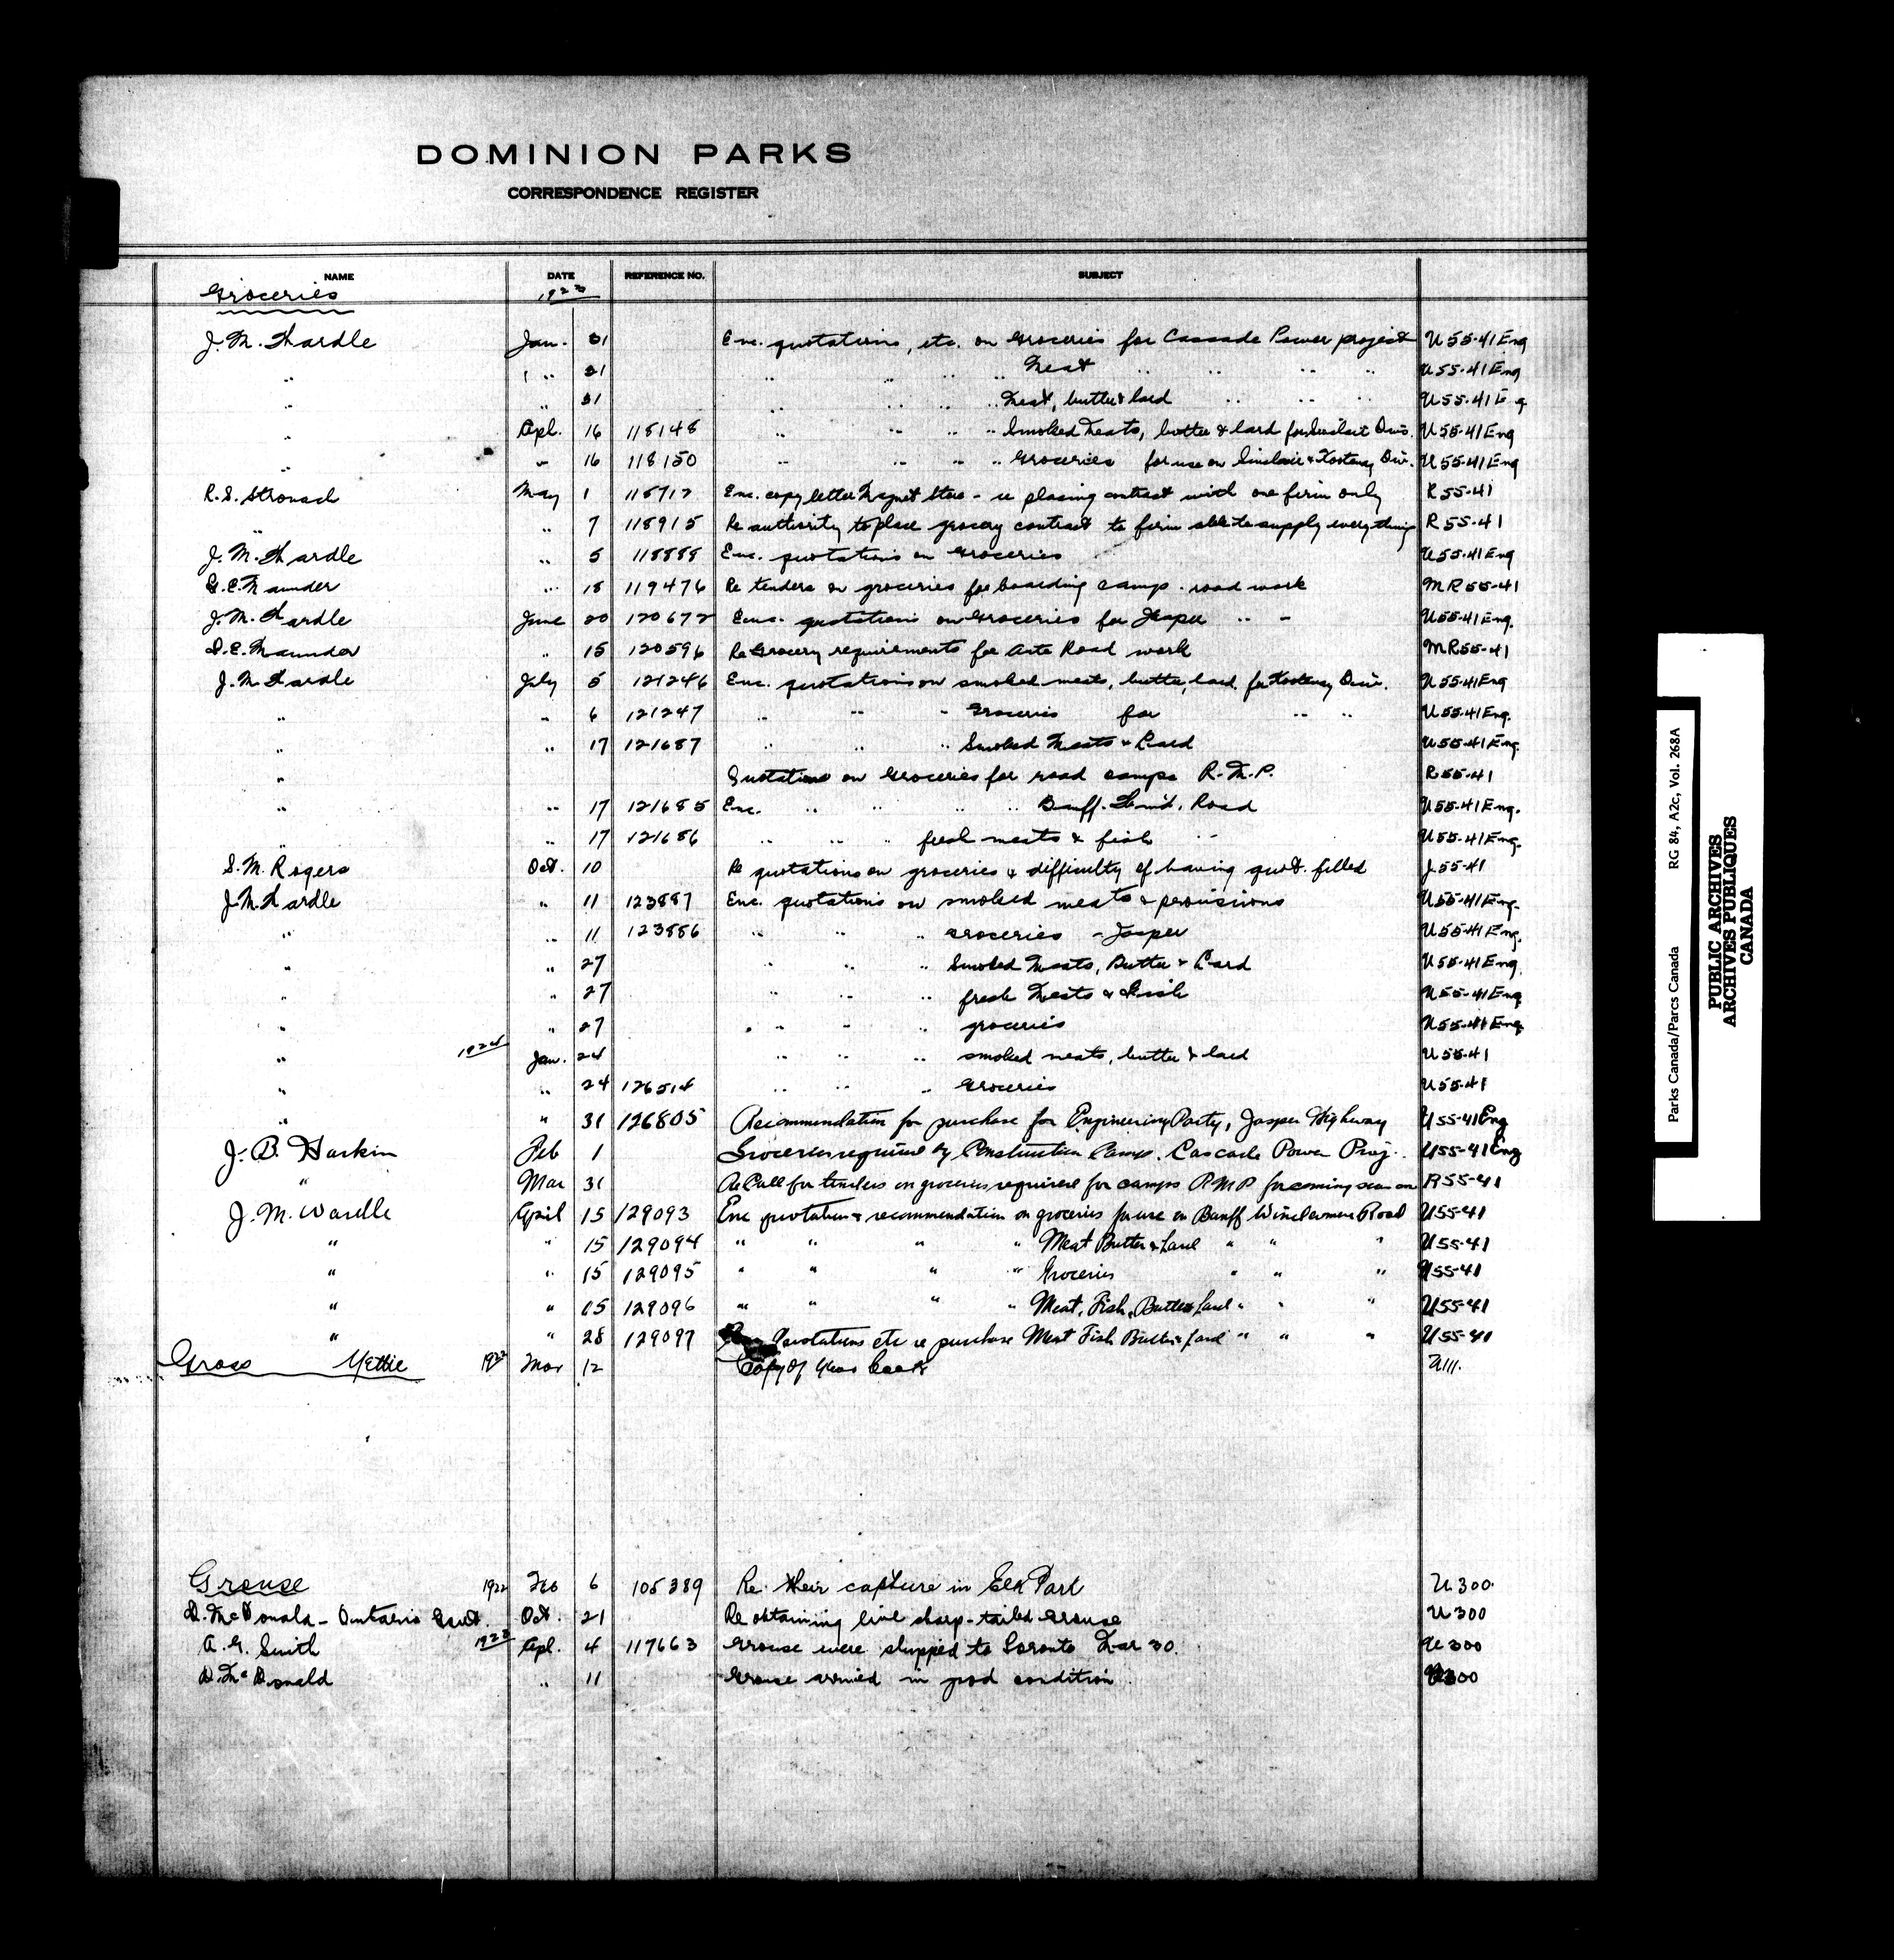 DOMINION PARKS
CORRESPONDENCE REGISTER
NAME DATE REFERENCE NO. SUBJECT
Groceries 1923
J. M. Wardle Jan. 31 Enc. quotations, etc. on Groceries for Cascade Power project U55-41 Eng
" " 31 " " " " Meat " " " " U55-41 Eng
" " 31 " " " " Meat, butter & lard " " " U55-41 Eng
" Apl. 16 118148 " " " " Smoked Meats, butter & lard for Sinclair Div. U55-41 Eng
" " 16 118150 " " " " Groceries for use on Sinclair & Kootenay Div. U55-41 Eng
R. S. Stronach May 1 118712 Enc. copy letter Magnet Store - re placing contract with one firm only R55-41
" " 7 118915 Re authority to place grocery contract to firm able to supply everything R55-41
J. M. Wardle " 5 118888 Enc. quotations on Groceries U55-41 Eng
G. E. Maunder " 18 119476 Re tenders on groceries for boarding camp. road work MR55-41
J. M. Wardle June 20 120672 Enc. quotations on Groceries for Jasper " - U55-41 Eng.
G. E. Maunder " 15 120596 Re Grocery requirements for Auto Road work MR55-41
J. M. Wardle July 5 121246 Enc. quotations on smoked meats, butter, lard. for Kootenay Div. U55-41 Eng
" " 6 121247 " " " Groceries for " " U55-41 Eng.
" " 17 121687 " " " Smoked Meats & Lard U55-41 Eng.
" Quotations on Groceries for road camps R.M.P. R55-41
" " 17 121685 Enc. " " " " Banff-Wind. Road U55-41 Eng.
" " 17 121686 " " " fresh meats & fish " U55-41 Eng.
S. M. Rogers Oct. 10 Re quotations on groceries & difficulty of having quot. filled J.55-41
J. M. Wardle " 11 123887 Enc. quotations on smoked meats & provisions U55-41 Eng.
" " 11 123886 " " " Groceries - Jasper U55-41 Eng.
" " 27 " " " Smoked Meats, Butter & Lard U55-41 Eng.
" " 27 " " " fresh Meats & Fish U55-41 Eng
" " 27 " " " groceries U55-41 Eng
" 1924 Jan. 24 " " " smoked meats, butter & lard U55-41
" " 24 126514 " " " Groceries U55-41
" " 31 126805 Recommendation for purchase for Engineering Party, Jasper Highway U55-41 Eng
J. B. Harkin Feb 1 Groceries required by Construction Camp. Cascade Power Proj. U55-41 Eng
" Mar 31 Re Call for tenders on groceries required for camps R M P for coming season R55-41
J. M. Wardle April 15 129093 Enc quotation & recommendation on groceries for use on Banff Windermere Road U55-41
" " 15 129094 " " " " Meat Butter & Lard " " " U55-41
" " 15 129095 " " " " Groceries " " " U55-41
" " 15 129096 " " " " Meat, Fish, Butter & Lard " " " U55-41
" " 28 129097 Quotations etc re purchase Meat Fish Butter & Lard " " " U55-41
Gross Nettie 1922 Mar 12 Copy of U111.
Grouse 1922 Feb 6 105389 Re. their capture in Elk Park U.300.
D. McDonald - Ontario Govt. Oct. 21 Re obtaining live sharp-tailed Grouse U300
A. G. Smith 1923 Apl. 4 117663 Grouse were shipped to Toronto Mar 30. U300
D. McDonald " 11 Grouse arrived in good condition U300
Parks Canada/Parcs Canada RG 84, A2c, Vol. 268A
PUBLIC ARCHIVES
ARCHIVES PUBLIQUES
CANADA